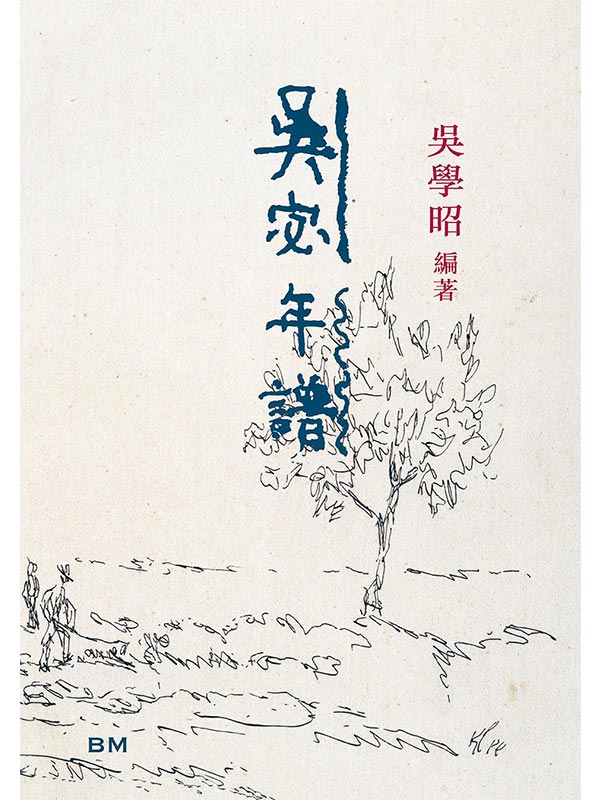 吳學昭 編著
吳宓年譜
BM